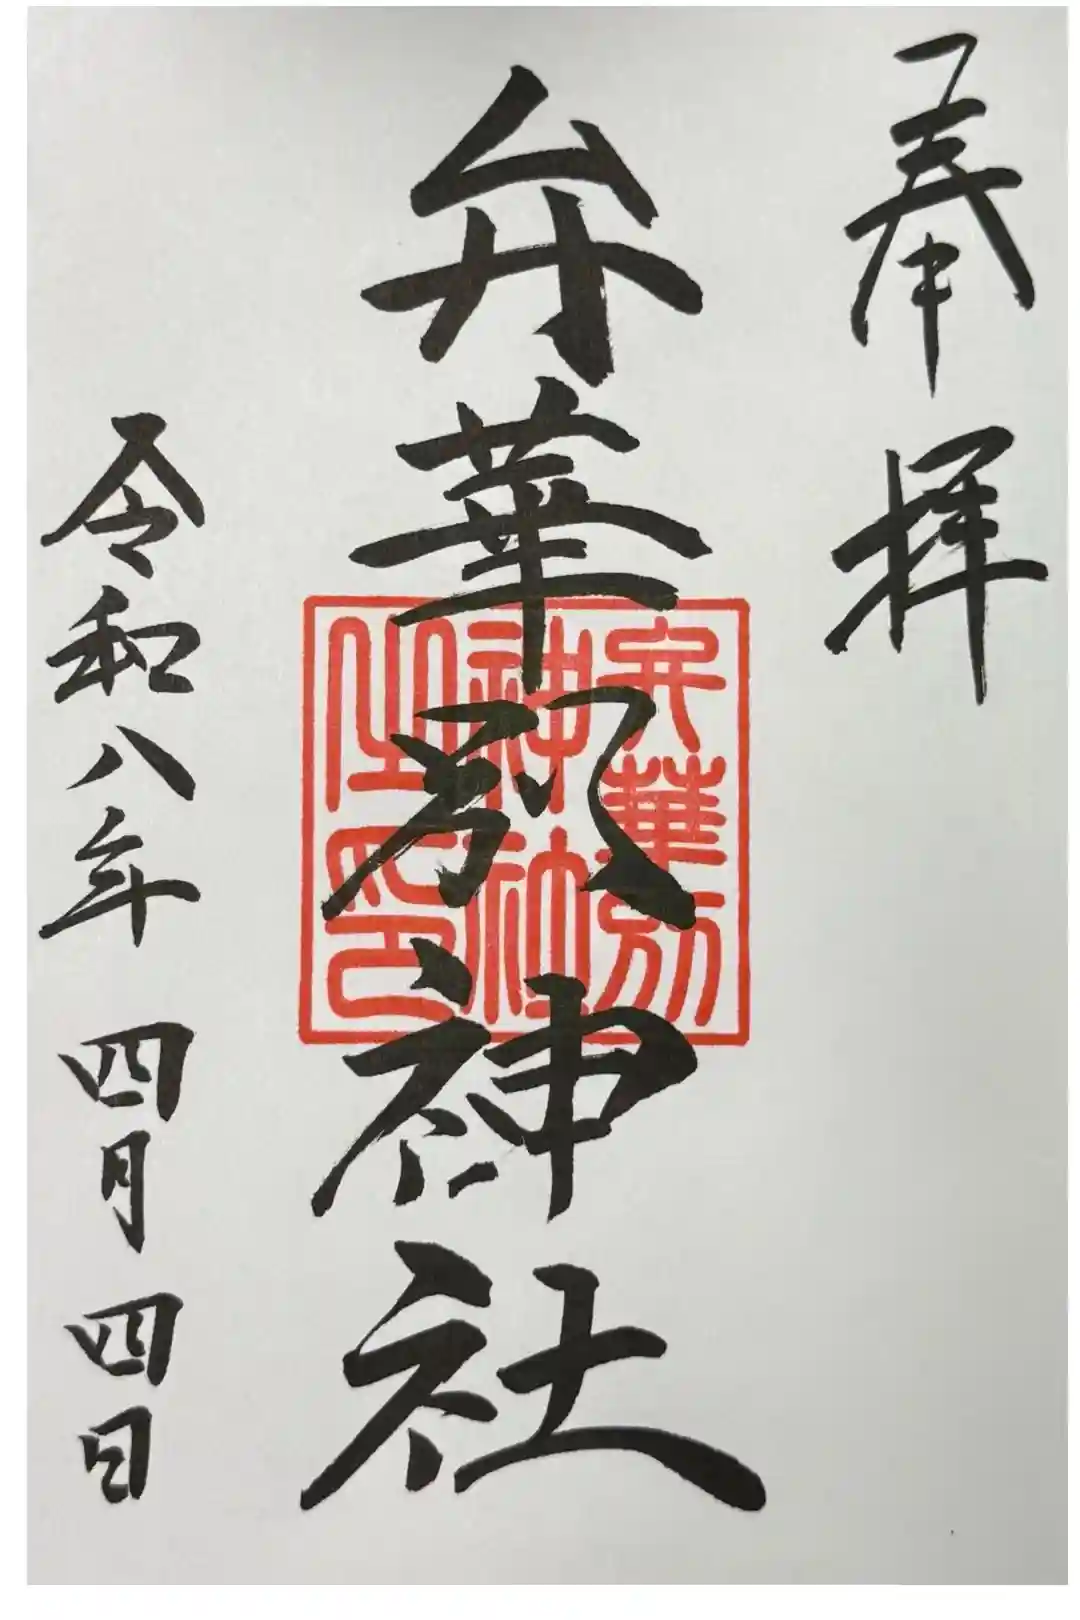 奉拝
弁華別神社
弁華別
神社
之印
令和八年 四月 四日